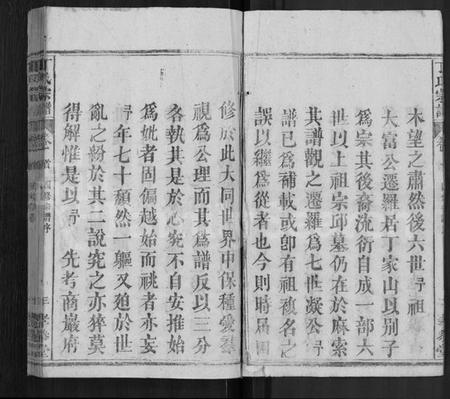 木望之肅然後六世祖
大富公遷羅居丁家山以別子
爲宗其後裔流衍自成一部六
世以上祖宗邱墓仍在於麻索
其譜觀之遷羅爲七世凝公
譜已爲補載或卽有祖複名之
誤以繼爲從者也今則時局
修於此大同世界中保種愛羣
視爲公理而其爲譜反以三分
各執其是於心究不自安推始
爲姚者固偏越始而祧者亦妄
年七十頹然一軀又廹於世
亂之紛於其二說究之亦猝莫
得解惟是以 先考商巖府
丁氏宗譜